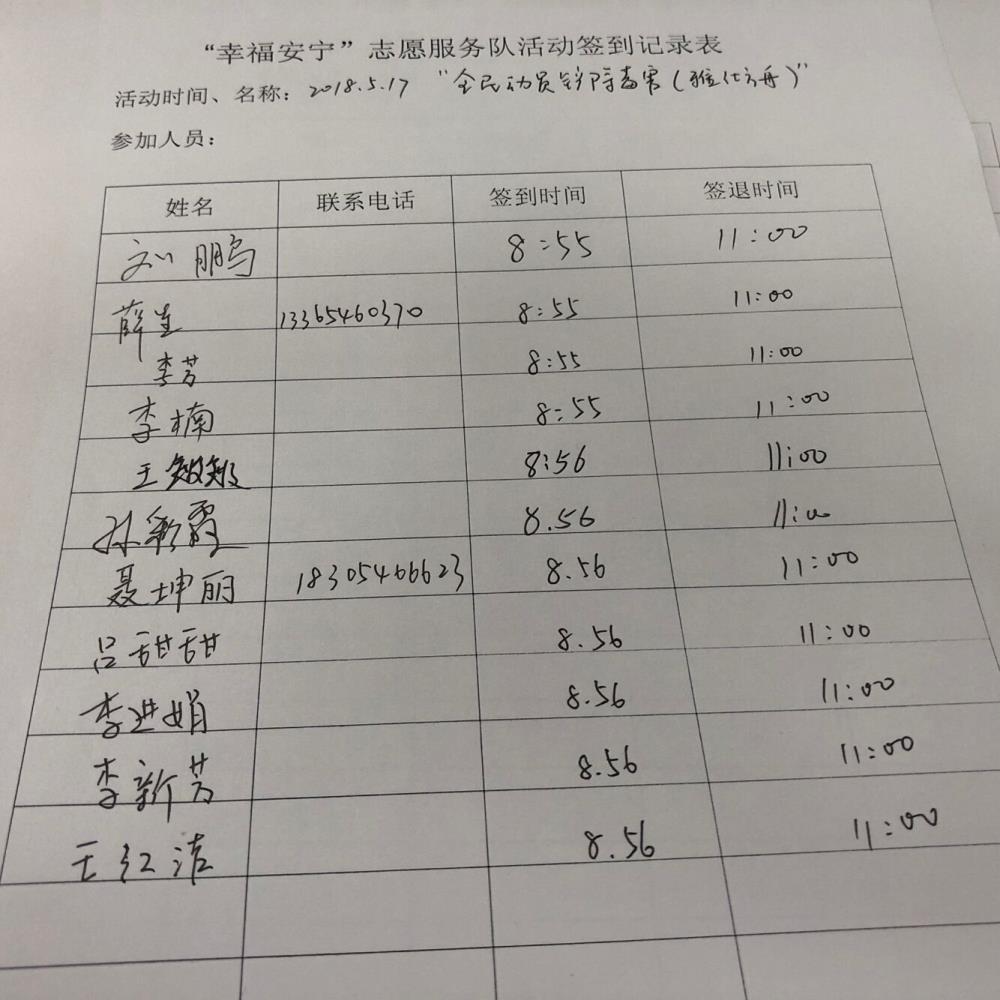 “幸福安宁”志愿服务队活动签到记录表
活动时间、名称：2018.5.17 “全民动员铲除毒害（雅仕方舟）”
参加人员：
姓名 联系电话 签到时间 签退时间
刘鹏 8:55 11:00
薛生 13365460370 8:55 11:00
李芳 8:55 11:00
李楠 8:55 11:00
王敏敏 8:56 11:00
孙彩霞 8.56 11:00
聂坤丽 18305466623 8.56 11:00
吕甜甜 8.56 11:00
李进娟 8.56 11:00
李新芳 8.56 11:00
王红洁 8.56 11:00